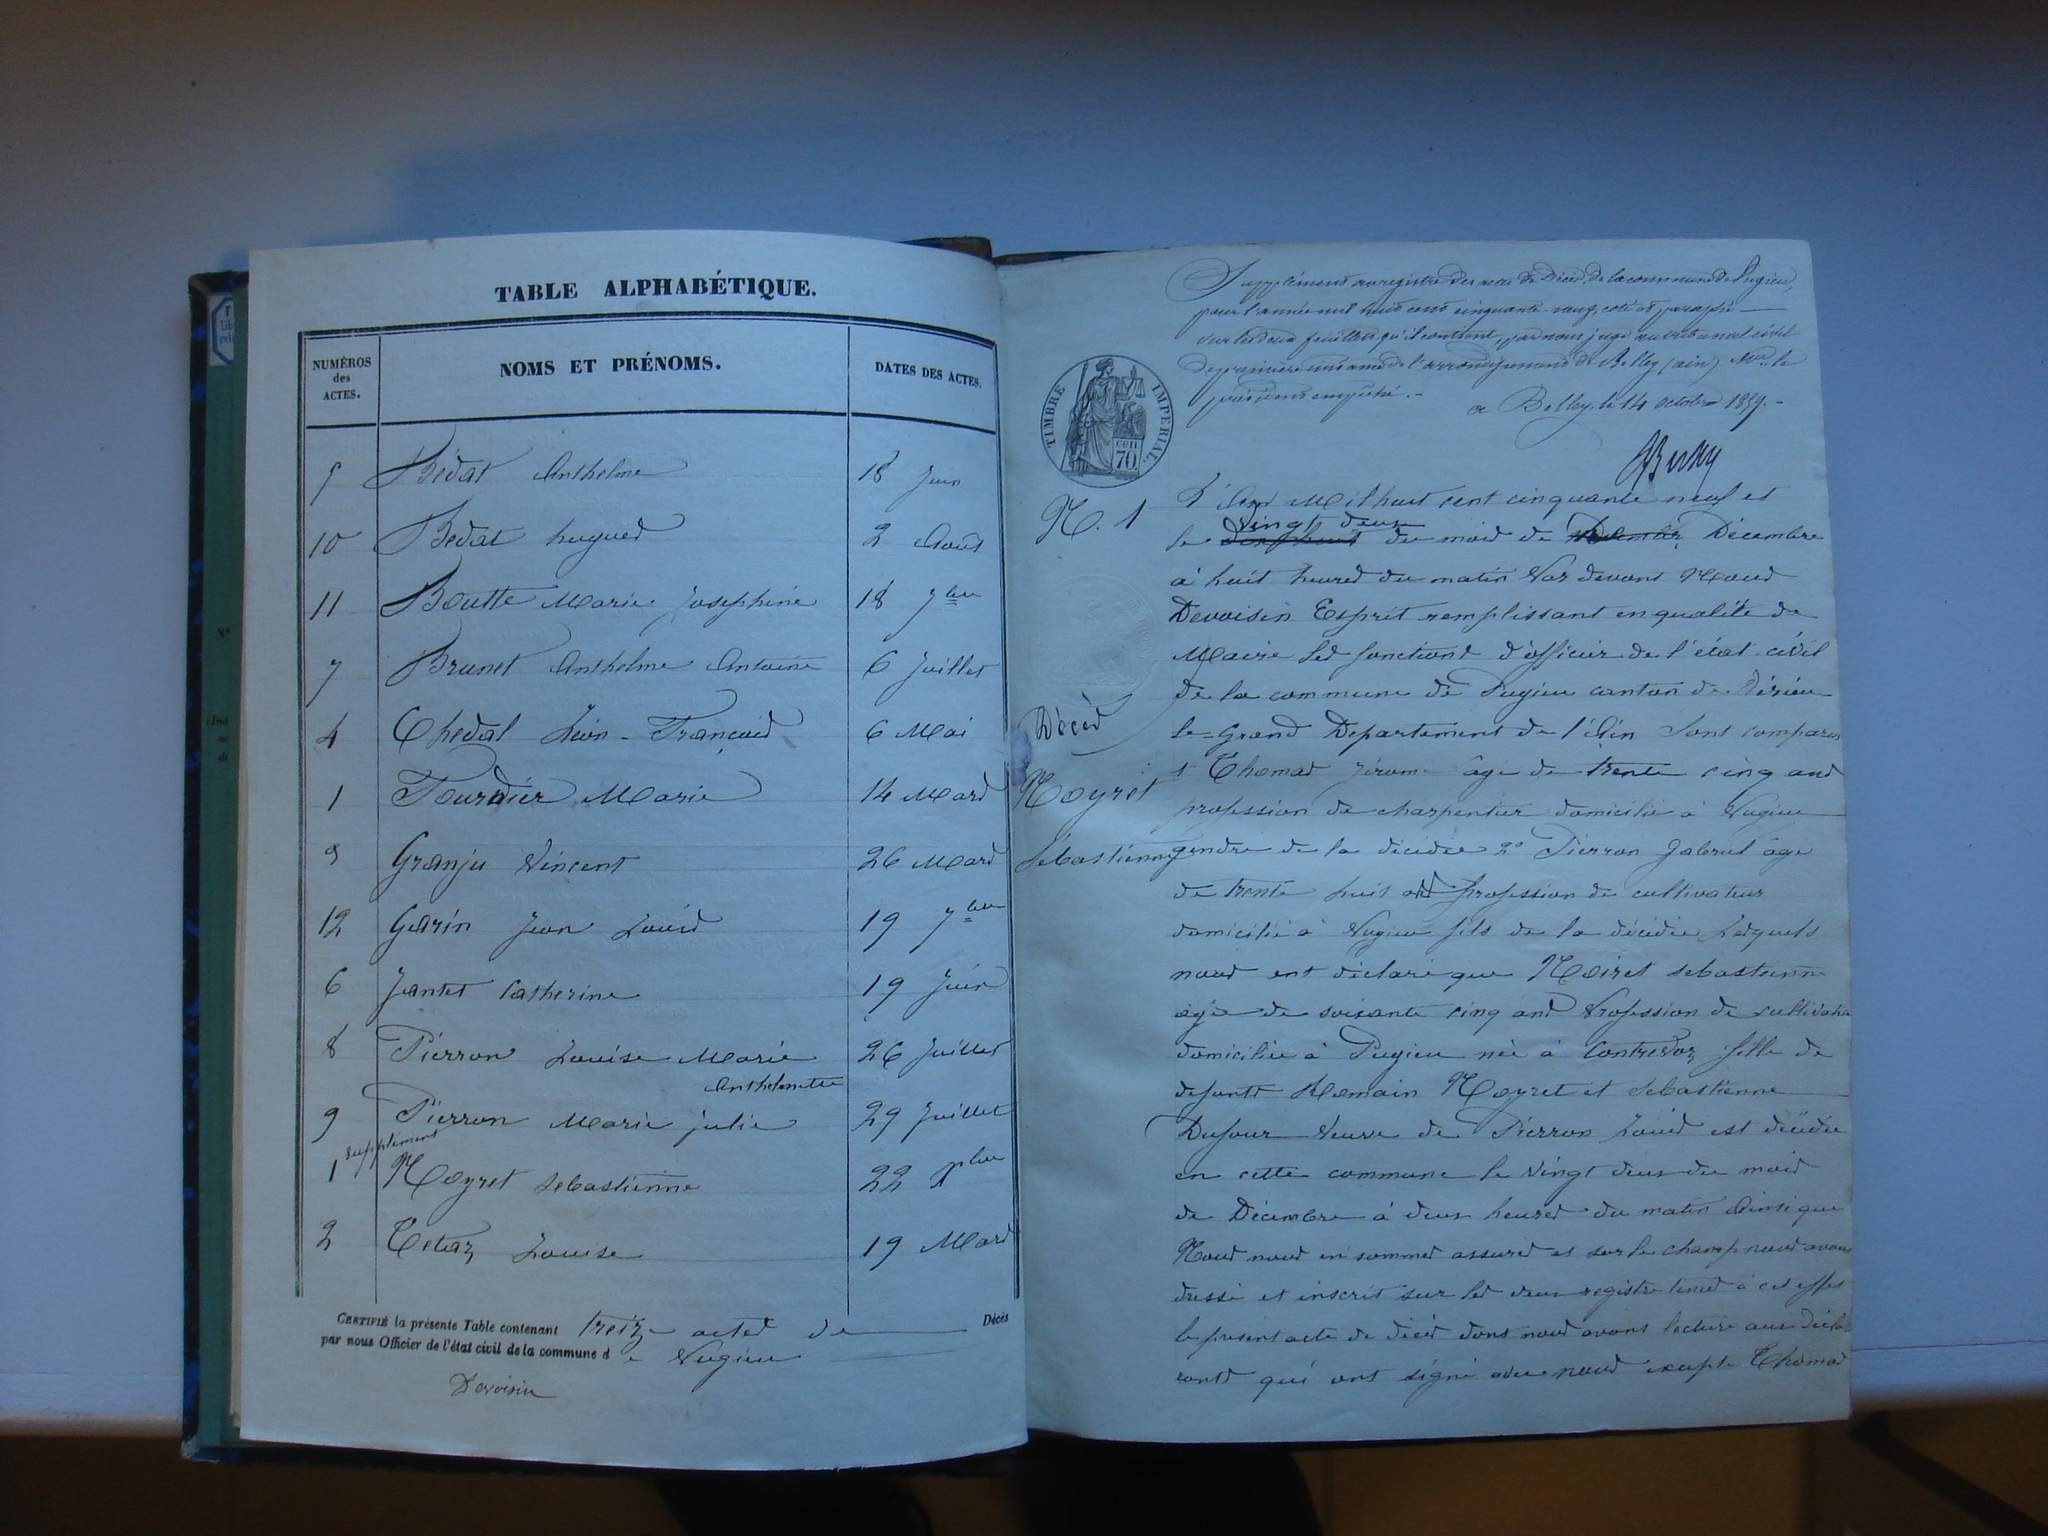 TABLE ALPHABÉTIQUE.
NUMÉROS des ACTES. NOMS ET PRÉNOMS. DATES DES ACTES.
5 Bédat Anthelme 18 Juin
10 Bedat hugues 2 Août
11 Boutte Marie Josephine 18 7bre
7 Brunet Anthelme Antoine 6 Juillet
4 Chedal Léon-François 6 Mai
1 Fourdier Marie 14 Mars
3 Granju Vincent 26 Mars
12 Garin Jean Louis 19 7bre
6 Jantet Catherine 19 Juin
8 Pierron Louise Marie 26 Juillet
Anthelmette
9 Pierron Marie julie 29 Juillet
supplément
1 Noyret sebastienne 22 Xbre
2 Tetaz Louise 19 Mars
CERTIFIÉ la présente Table contenant treize actes de Décès
par nous Officier de l'état civil de la commune de Pugieu
Devoisin
Supplément au registre des actes de Décès de la commune de Pugieu,
pour l'année mil huit cent cinquante-neuf, coté et paraphé
sur les deux feuillets qu'il contient, par nous juge au tribunal civil
de première instance de l'arrondissement de Belley (ain) Mr. le
président empêché.
a Belley, le 14 octobre 1859.
TIMBRE IMPERIAL.
cen. 70
N. 1
L'an Mil huit cent cinquante neuf et
vingt deux
le du mois de Décembre
à huit heures du matin Par devant Nous
Devoisin Esprit remplissant en qualité de
Maire les fonctions d'officier de l'état civil
de la commune de Pugieu canton de Virieu
Décès
le-Grand Departement de l'Ain Sont comparus
1° Thomas Jérome âgé de trente cinq ans
Noyret
profession de charpentier domicilié à Pugieu
Sebastienne
gendre de la décédée 2° Pierron Gabriel âgé
de trente huit ans profession de cultivateur
domicilié à Pugieu fils de la décédée Lesquels
nous ont déclaré que Noiret sebastienne
agée de soixante cinq ans Profession de cultivatrice
domiciliée à Pugieu née à Contrevoz fille de
defunts Romain Noyret et Sebastienne
Dufour Veuve de Pierron Louis est décédée
en cette commune le Vingt deux du mois
de Décembre à deux heures du matin Ainsi que
Nous nous en sommes assurés et sur le champ nous avons
dressé et inscrit sur les deux registre tenus à cet effet
le present acte de décès dont nous avons lecture aux décla
rants qui ont signé avec nous excepté Thomas